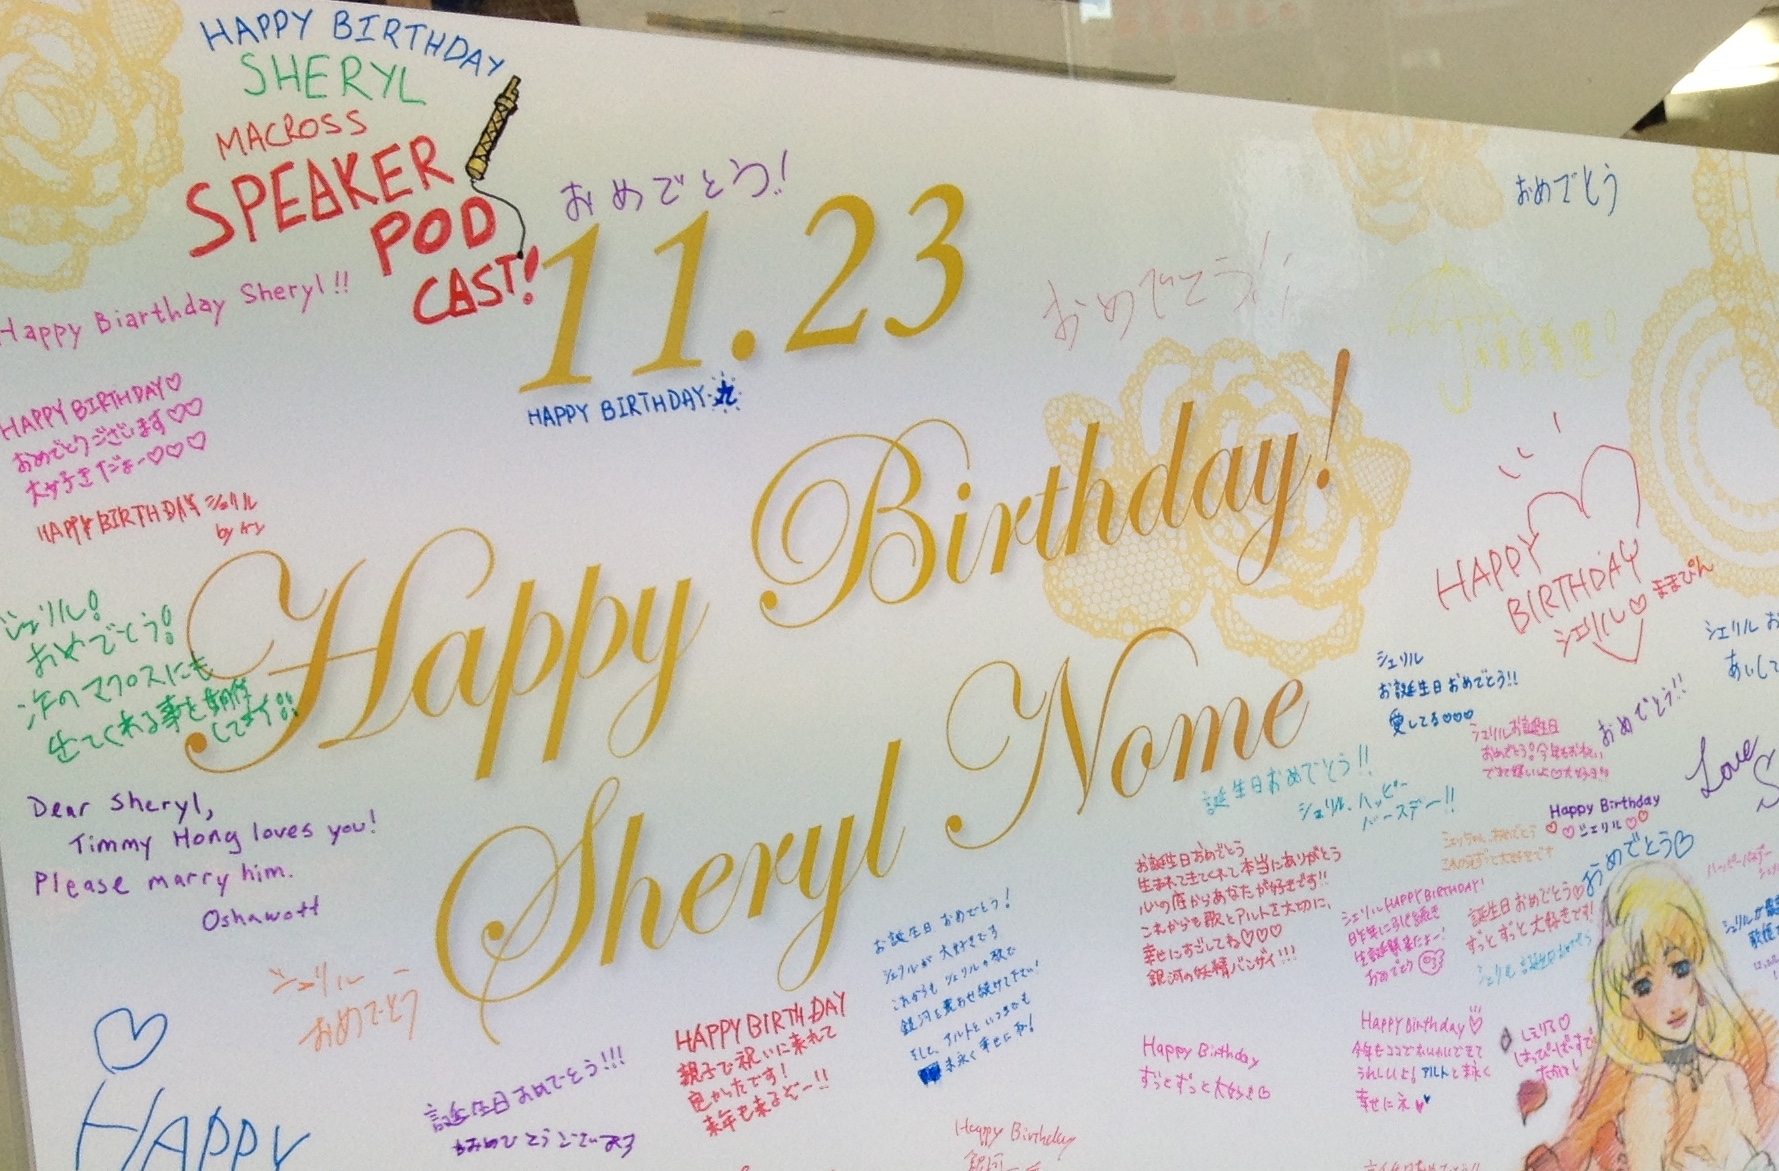 HAPPY BIRTHDAY
SHERYL
MACROSS
SPEAKER
POD
CAST!
おめでとう!
おめでとう
11.23
Happy Biarthday Sheryl!!
おめでとう!!
HAPPY BIRTHDAY♡
おめでとうございます♡♡
大好きだよー♡♡♡
HAPPY BIRTHDAY☆
HAPPY BIRTHDAY シェリル
by
Happy Birthday!
HAPPY
BIRTHDAY
シェリル♡
ままぴん
シェリル!
おめでとう!
次のマクロスにも
出てくれる事を期待
してます!!
Sheryl Nome
シェリル
お誕生日おめでとう!!
愛してる♡♡♡
シェリル お
あいして
シェリルお誕生日
おめでとう!!
Love
Dear Sheryl,
Timmy Hong loves you!
Please marry him.
Oshawott
誕生日おめでとう!!
シェリル、ハッピー
バースデー!!
Happy Birthday
♡♡シェリル♡♡
おめでとう♡
お誕生日おめでとう
生まれてきてくれて本当にありがとう
心の底からあなたが好きです!!
これからも歌とアルトを大切に、
幸せにすごしてね♡♡♡
銀河の妖精バンザイ!!!
シェリルHAPPY BIRTHDAY!
おめでとう
誕生日おめでとう♡
ずっとずっと大好きです!
お誕生日 おめでとう!
シェリルが 大好きです
これからも シェリルの歌で
銀河を震わせ続けて下さい!
そして、アルトといつまでも
末永く幸せにね!
シェリル
おめでとう
HAPPY BIRTHDAY
親子で祝いに来れて
良かったです!
来年も来るぞー!!
誕生日おめでとう!!!
Happy Birthday
ずっとずっと大好き♡
Happy Birthday♡
今年もココでおいわいできて
うれしいよ♪アルトと末永く
幸せにネ♥♥
しぇりる♡
はっぴーばーすでー
HAPPY
Happy Birthday
銀河